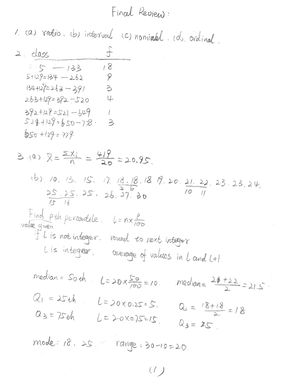 Final Review:
1. (a) ratio. (b) interval (c) nominal. (d). ordinal.
2. class f
5 — 133 18
5+129=134 — 262 9
134+129=263 — 391 3
263+129=392 — 520 4
392+129=521 — 649 1
521+129=650 — 778 3
650+129=779
3. (a) x̄ = Σxi/n = 419/20 = 20.95.
(b). 10. 13. 15. 17. 18. 18. 18 19. 20. 21. 22. 23. 23. 24.
5 6 10 11
25. 25. 25. 26. 27. 30
15 16
Find pth percentile. L = n× p/100
value given
if L is not integer. round to next integer
L is integer. average of values in L and L+1
median = 50th L = 20× 50/100 = 10. median = 21+22/2 = 21.5
Q1 = 25th L = 20×0.25 = 5. Q1 = 18+18/2 = 18
Q3 = 75th L = 20×0.75 = 15. Q3 = 25.
mode: 18. 25. range: 30-10=20
(1)